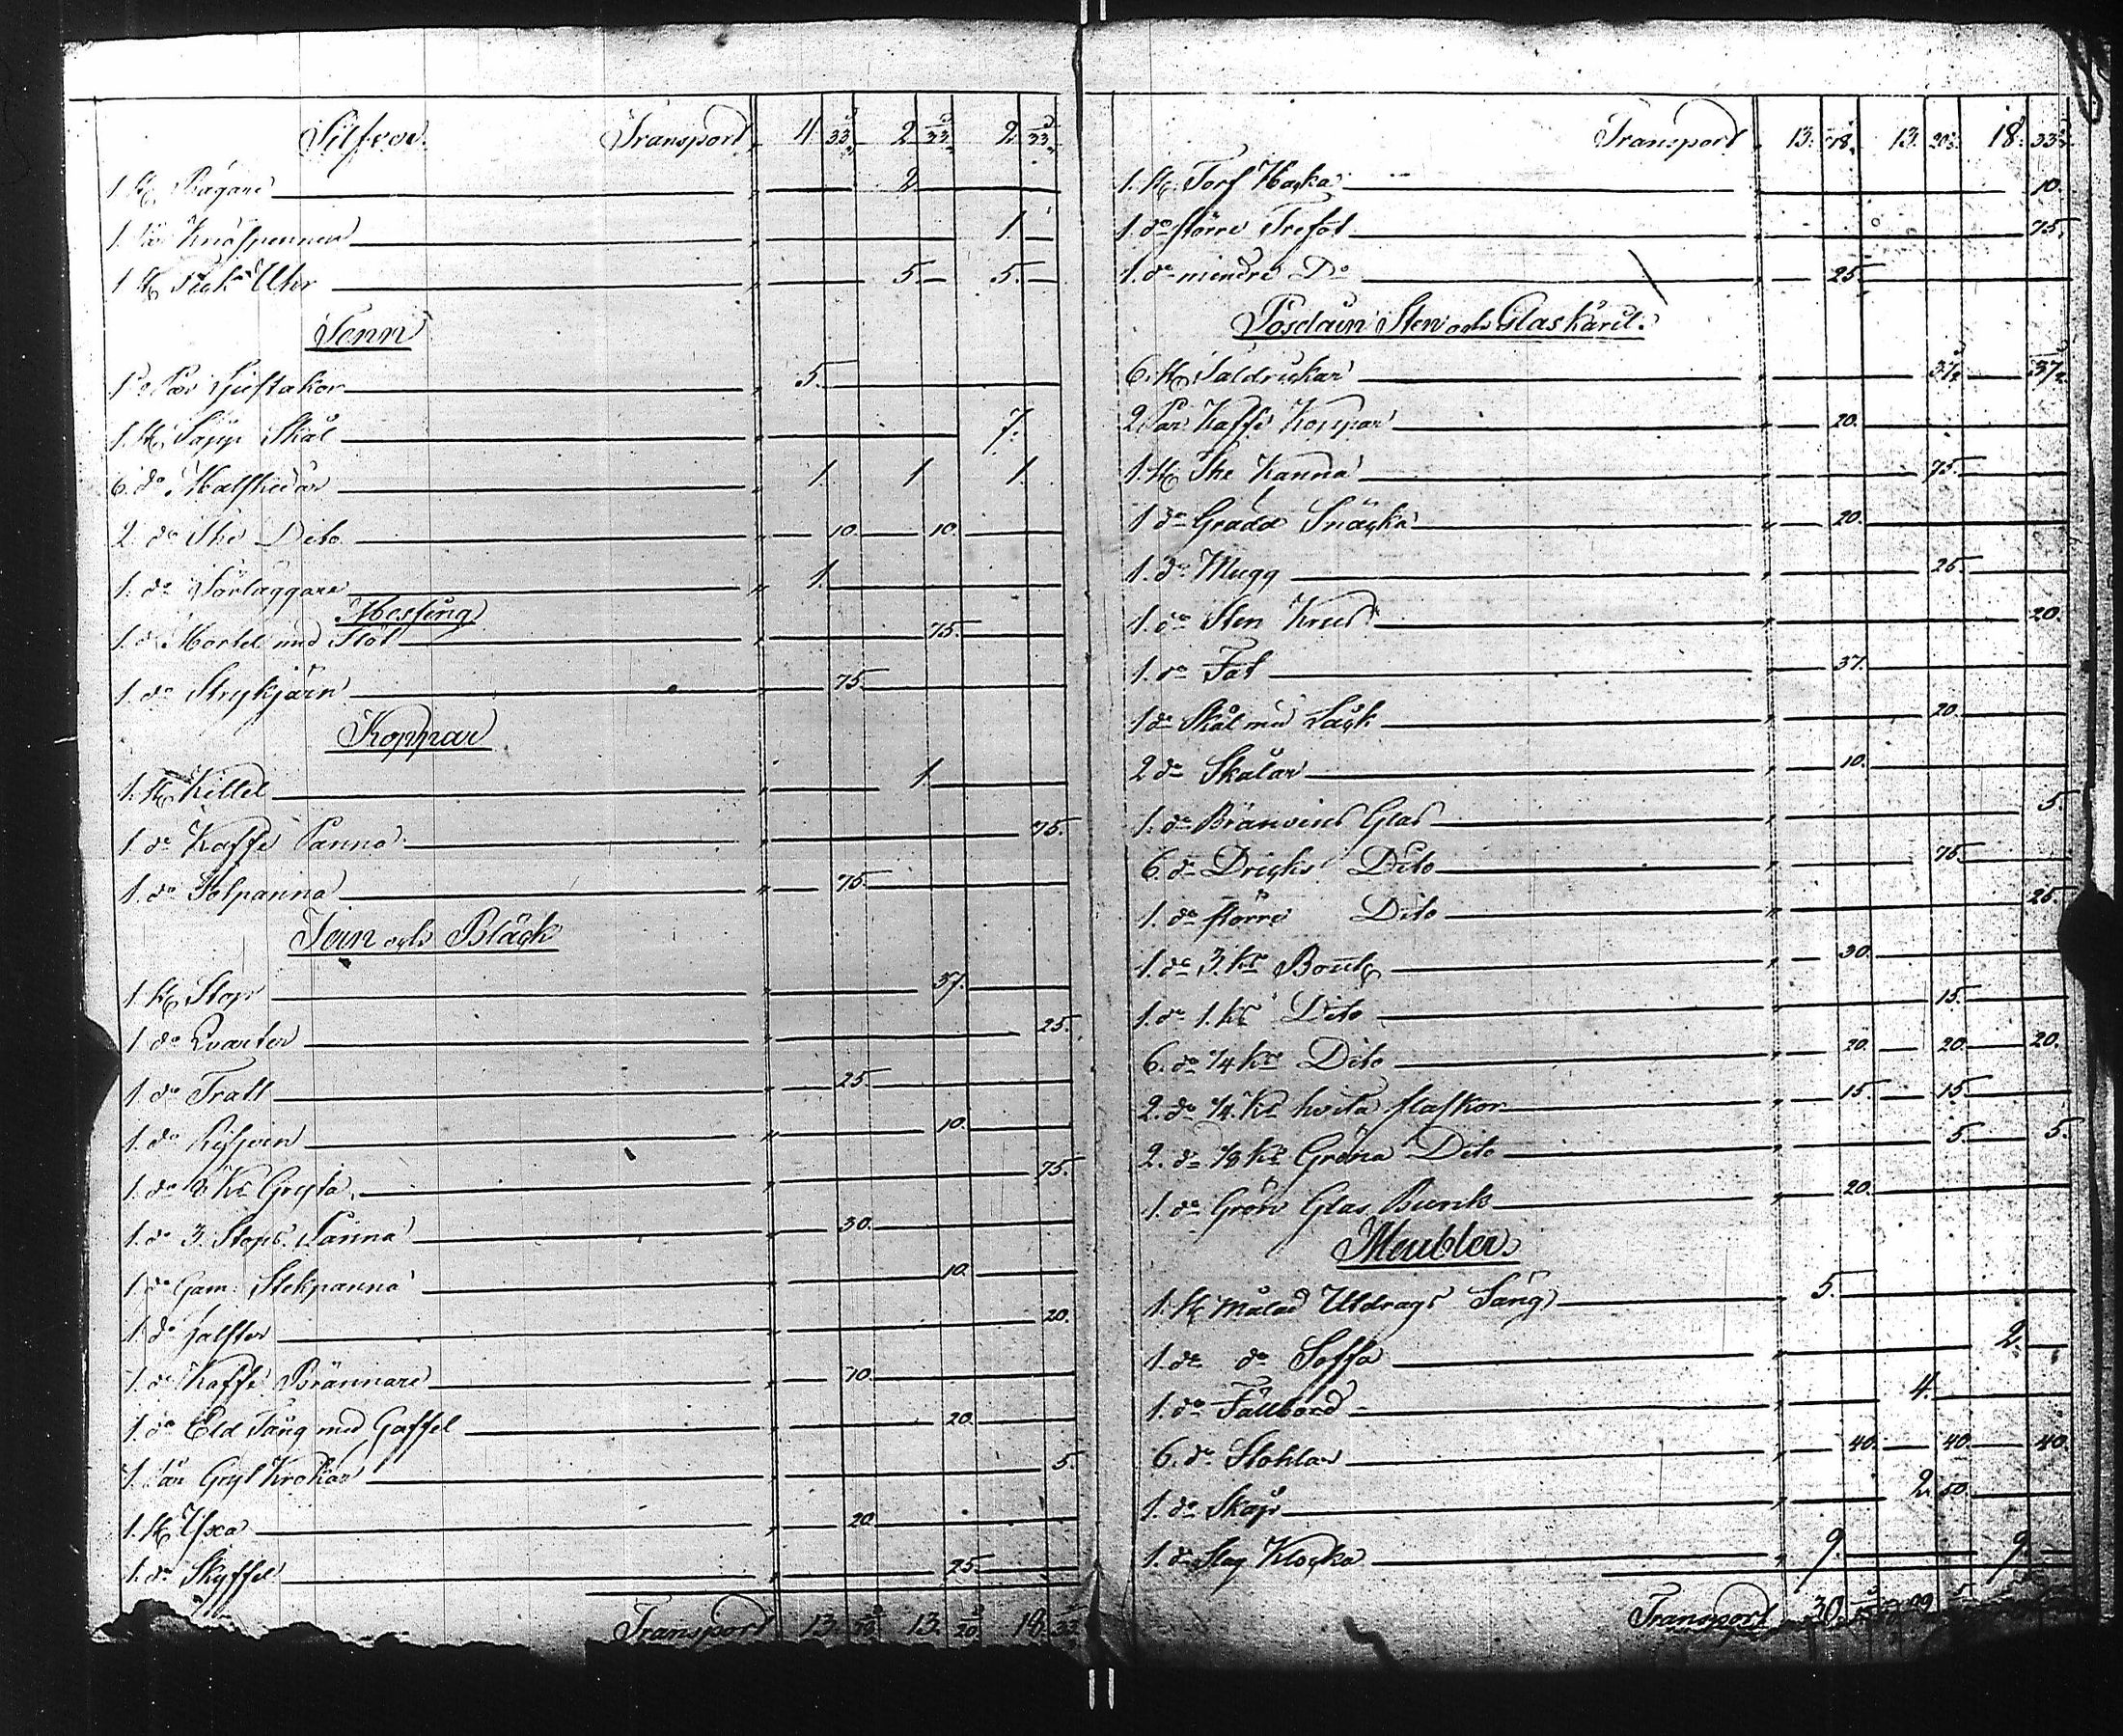 Silfver. Transport 4. 33 2. 33 2. 33
1 St. Bägare 2
1. Par Knäspennen 1.
1 St. Fick Uhr 5. 5.
Tenn
1. Par Ljustakor 5.
1. St. Såpp Skål 7.
6. do Matskedar 1. 1 1.
2. do The Dito 10. 10.
1. do Förläggare 1.
Messing
1. do Mortel med Stöt 75.
1. do Strykjärn 75.
Koppar
1. St. Kittel 1.
1. do Kaffe Panna 75.
1. do Tolpanna 75.
Jern och Bläck
1. St. Stop 37.
1. do Qvarter 25.
1. do Tratt 25
1. do Rifjern 10.
1. do Kr Gryta 75.
1. do 3. Stops. Panna 30.
1. do Gam. Stekpanna 10.
1. do halster 20.
1. do Kaffe Brännare 70.
1. do Eld Tång med Gaffel 20.
1. Par Gryt Krokar 5.
1. St. Yxa 20.
1. do Skyffel 25.
Transport 13. 78 13. 20 18. 33
Transport 13. 78 13. 20 18. 33
1. St. Torf Hacka 10.
1. do större Trefot 75.
1. do mindre Do 25.
Poslain Sten och Glas Käril.
6. St. Taldrickar 37½ 37½
2 Par Kaffe Koppar 20.
1. St. The Kanna 75.
1 do Grädd Snäcka 20.
1. do Mugg 25.
1. do Sten Krus 20.
1. do Fat 37.
1 do Skål med Låck 20.
2 do Skålar 10.
1. do Bränvins Glas 5.
6. do Dricks Dito 75.
1. do större Dito 25.
1. do 3. Krs Boutl 30.
1. do 1. Kr Dito 15.
6. do 1/4 Krs Dito 20. 20. 20.
2. do 1/4. Kr hvita flaskor 15. 15.
2. do 1/8 Kr Gröna Dito 5. 5.
1. do Grön Glas Burk 20.
Meubler.
1. St. Målad Utdrags Säng 5.
1. do do Soffa 2.
1. do Fällbord 4.
6. do Stohlar 40. 40. 40
1. do Skåp 2. 50.
1. do Slag Klocka 9. 9.
Transport 30.